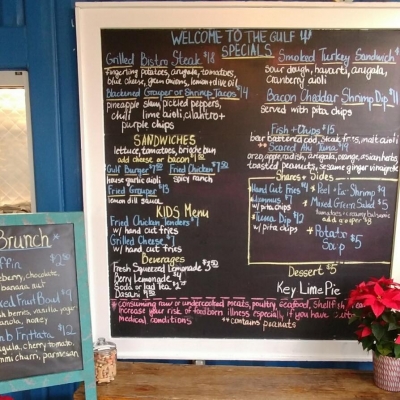 WELCOME TO THE GULF
SPECIALS
Grilled Bistro Steak $18
fingerling potatoes, arugula, tomatoes,
blue cheese, green onions, lemon+olive oil
Blackened Grouper or Shrimp Tacos $14
pineapple slaw, pickled peppers,
chili lime aioli, cilantro+
purple chips
SANDWICHES
lettuce, tomatoes, brioche bun
add cheese or bacon
Gulf Burger Fried Chicken
house garlic aioli spicy ranch
Fried Grouper $13
lemon dill sauce
KIDS Menu
Fried Chicken Tenders $7
w/ hand cut fries
Grilled Cheese
w/ hand cut fries
Beverages
Fresh Squeezed Lemonade
Berry Lemonade $4
Soda or Iced Tea
Dasani
Smoked Turkey Sandwich
sour dough, havarti, arugula,
cranberry aioli
Bacon Cheddar Shrimp Dip
served with pita chips
Fish + Chips $15
bar battered cod, steak fries, malt aioli
** Seared Ahi Tuna
orzo, apple, radish, arugula, orange, asian herbs,
toasted peanuts, sesame ginger vinaigrette
Shares + Sides
Hand Cut Fries $4
Hummus $7
w/ pita chips
Tuna Dip $12
w/ pita chips
Peel + Eat Shrimp
Mixed Green Salad $5
tomatoes + creamy balsamic
Potato
Soup
Dessert $5
Key Lime Pie
* Consuming raw or undercooked meats, poultry, seafood, Shellfish
Increase your risk of foodborn illness, especially if you have
medical conditions **contains peanuts
Brunch
$2.50
chocolate
banana nut
Fruit Bowl $9
berries, vanilla yogurt
granola, honey
Frittata $12
arugula, cherry tomato
chimi churri, parmesan